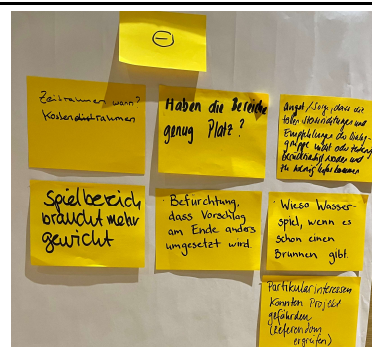 ⊖
Zeitrahmen wann?
Kostendistrahmen
Haben die Bereiche
genug Platz?
Angst/Sorge, dass die
tollen
Empfehlungen der Dialog-
gruppe nicht oder
werden und
zu kommen
Spielbereich
braucht mehr
gewicht
Befürchtung,
dass Vorschlag
am Ende anders
umgesetzt wird.
Wieso Wasser-
spiel, wenn es
schon einen
Brunnen gibt.
Partikularinteressen
könnten Projekt
gefährden
(Referendum
ergreifen)